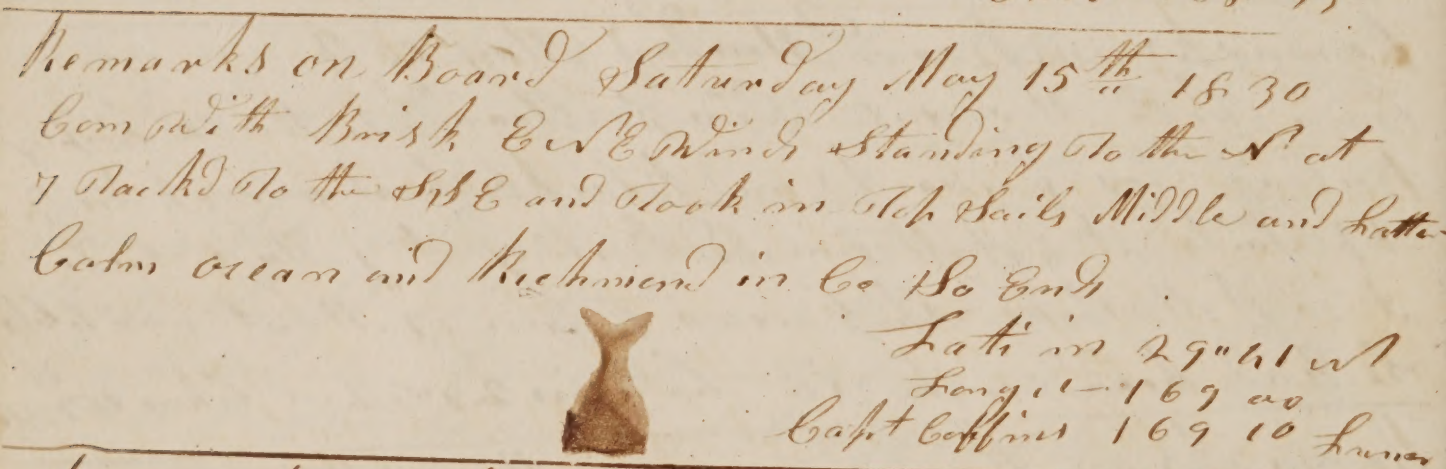 Remarks on Board Saturday May 15th 1830
Com With Brisk E N E Winds Standing To the Nd at
7 Tackd To the S S E and Took in Top Sails Middle and Latter
Calm ocean and Richmond in Co So Ends
Latt in 29"41 N
Longit 169 00
Capt Coffins 169 10 Lunar